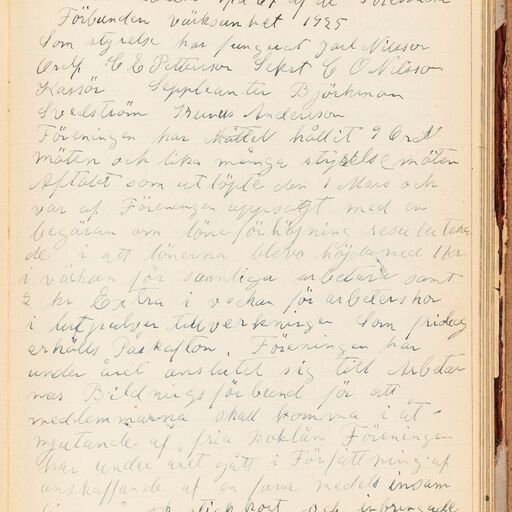 Förbunden värksamhet 1925
Som styrelse har fungerat Jarl Nilsson
Ordf C E Petterson Sekrt C O Nilsson
Kassör Seppleanter Björkman
Svedström Andersson
Föreningen har hållit 9 Ord
möten och lika många styrelsemöten
Aftalet som utlöpte den 1 Mars och
var af Föreningen uppsagt med en
begäran om löneförhöjning resulatera
de i att lönerna blevo höjda med 1 kr
i väckan för samliga arbetare samt
2 kr Extra i veckan för arbeterskor
i tillverkningen Som fridag
erhålls Påskafton. Föreningen har
under året anslutet sig till Arbetar
nas Bildningsförbund för att
medlemmarna skall komma i åt-
njutande af fria Boklån Föreningen
har under året gått i Författning af
anskaffande af en fana medels insam
och inbringade